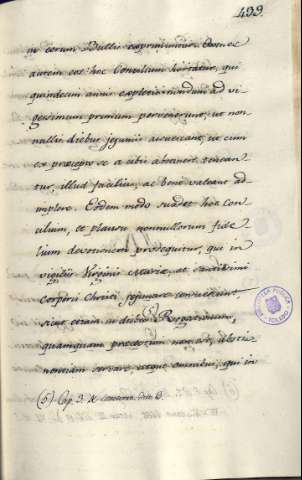 499.
in eorum Bullis exprimitur. Omnes
autem eos hoc Concilium hortatur, qui
quindecim annis expletis nondum ad vi-
gesimum primum pervenerunt, ut non-
nullis diebus jejuniis assuescant, ut cum
ex præcepto se a cibis abstinere tenean-
tur, illud facilius, ac bene valeant ad-
implere. Eodem modo suadet hoc Con-
cilium, et plausu nonnullorum fide-
lium devotionem prosequitur, qui in
vigiliis Virginis Mariæ, et Sanctissimi
Corporis Christi jejunare consueverunt
sicut etiam in diebus Rogationum,
quamquam præceptum non est, absti-
nentiam servare, atque omnibus, qui in
(6) Cap. 3. de consecr. dist.